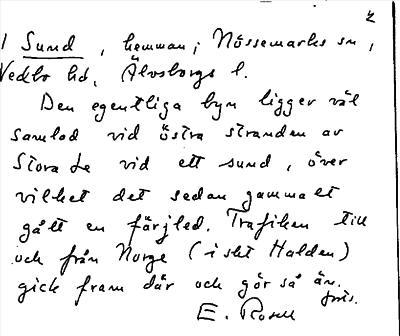 2
1 Sund, hemman i Nössemarks sn,
Vedbo hd, Älvsborgs l.
Den egentliga byn ligger väl
samlad vid östra stranden av
Stora Le vid ett sund, över
vilket det sedan gammalt
gått en färjled. Trafiken till
och från Norge (i sht Halden)
gick fram där och gör så än.
E. Rosell